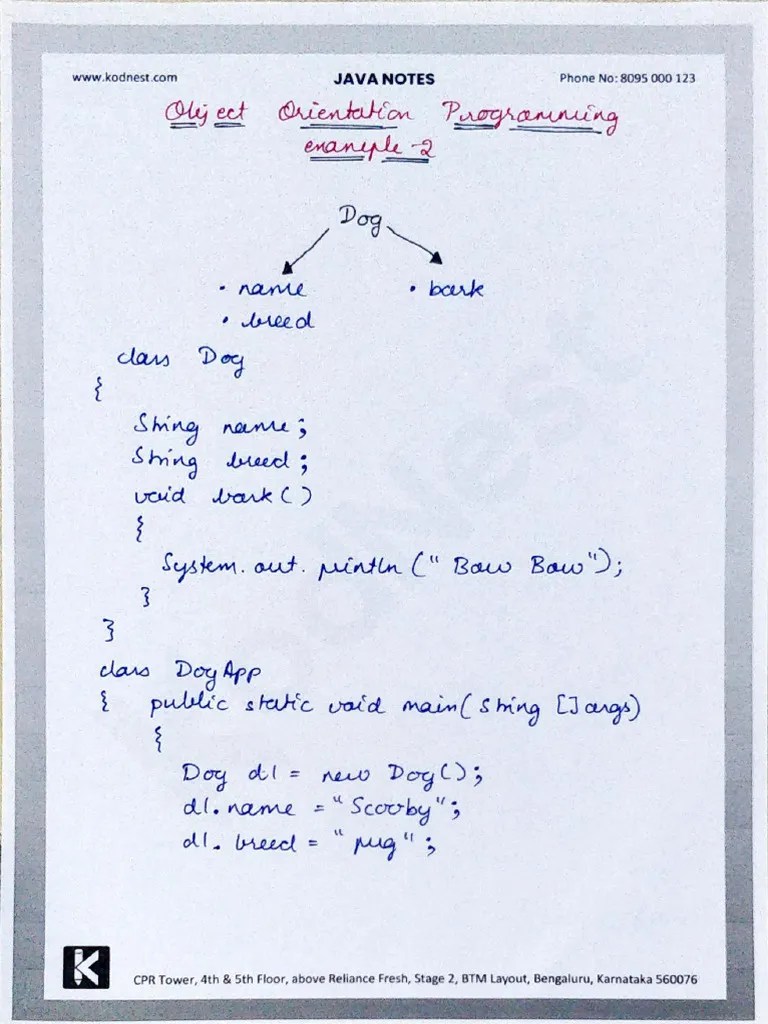 www.kodnest.com JAVA NOTES Phone No: 8095 000 123
Object Orientation Programming
example-2
Dog
• name • bark
• breed
class Dog
{
String name;
String breed;
void bark()
{
System.out.println(" Bow Bow");
}
}
class DogApp
{ public static void main(String []args)
{
Dog d1 = new Dog();
d1.name = "Scooby";
d1. breed = " pug";
KodNest
K
CPR Tower, 4th & 5th Floor, above Reliance Fresh, Stage 2, BTM Layout, Bengaluru, Karnataka 560076